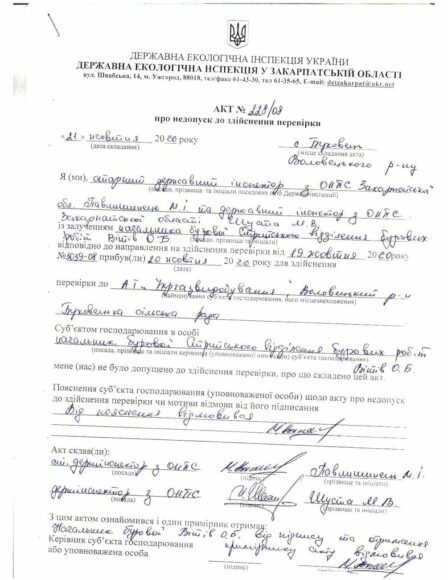 ДЕРЖАВНА ЕКОЛОГІЧНА ІНСПЕКЦІЯ УКРАЇНИ
ДЕРЖАВНА ЕКОЛОГІЧНА ІНСПЕКЦІЯ У ЗАКАРПАТСЬКІЙ ОБЛАСТІ
вул. Швабська, 14, м. Ужгород, 88018, тел/факс 61-43-30, 61-35-65, E-mail: deizakarpat@ukr.net
АКТ № 229/08
про недопуск до здійснення перевірки
«21» жовтня 2020 року
с. Буковець
(дата складання)
(місце складання акта)
Воловецького р-ну
Я (ми), старший державний інспектор з ОНПС Закарпатської
(посада, прізвище та ініціали посадових осіб Держекоінспекції)
обл. Павлишинець М.І. та державний інспектор з ОНПС
Закарпатської області Шуста М.В.
із залученням начальника бурової Стрийського відділення бурових
робіт Вітів О.Б.
(посада, прізвище та ініціали)
відповідно до направлення на здійснення перевірки від 19 жовтня 2020 року
№3039-08 прибув(ли) 20 жовтня 2020 року для здійснення
(дата)
перевірки до АТ "Укргазвидобування" Воловецький р-н
(найменування суб'єкта господарювання, його місцезнаходження)
Буковецька сільська рада
Суб'єктом господарювання в особі
начальник бурової Стрийського відділення бурових робіт
(посада, прізвище та ініціали керівника (уповноваженої ним особи) суб'єкта господарювання)
Вітів О.Б.
мене (нас) не було допущено до здійснення перевірки, про що складено цей акт.
Пояснення суб'єкта господарювання (уповноваженої особи) щодо акту про недопуск
до здійснення перевірки чи мотиви відмови від його підписання
Від пояснення відмовився
Акт склав(ли):
ст. держінспектор з ОНПС
Павлишинець М.І.
(посада)
(підпис)
(прізвище та ініціали)
держінспектор з ОНПС
Шуста М.В.
(посада)
(підпис)
(прізвище та ініціали)
З цим актом ознайомився і один примірник отримав:
Начальник бурової Вітів О.Б. від підпису та отримання
Керівник суб'єкта господарювання примірнику акту відмовився
або уповноважена особа
(підпис)